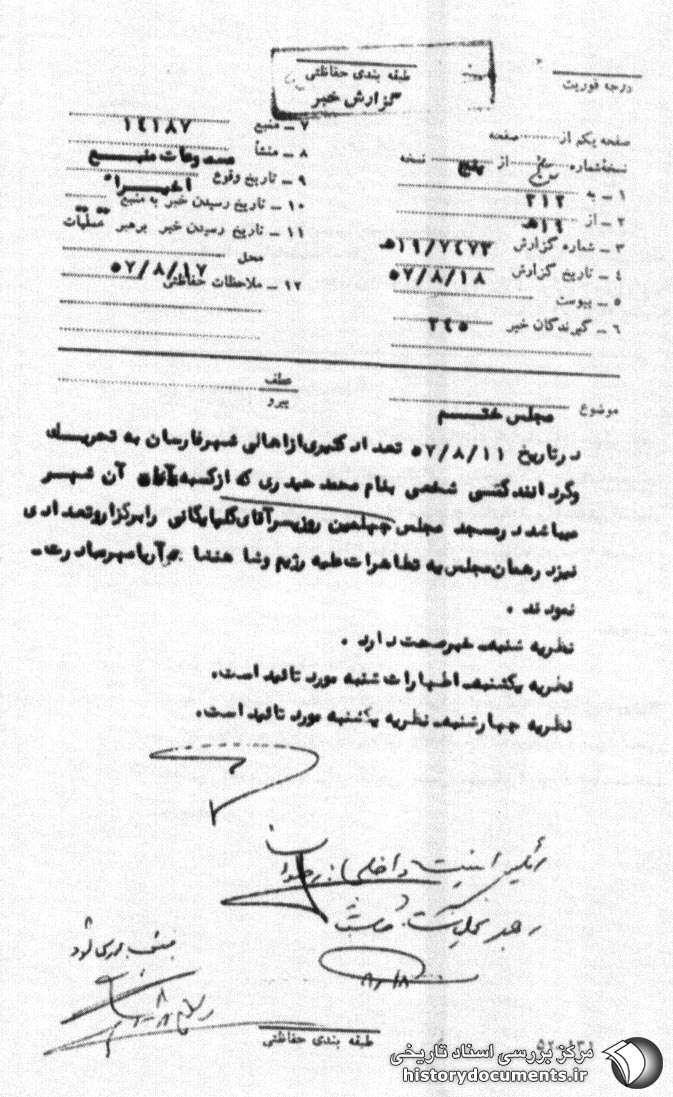 درجه فوریت
طبقه بندی حفاظتی
گزارش خبر
صفحه یکم از صفحه
نسخه شماره از پنج نسخه
۱ ــ به ۳۱۲
۲ ــ از ۱۹هـ
۳ ــ شماره گزارش ۱۹/۷۴۷۳هـ
۴ ــ تاریخ گزارش ۵۷/۸/۱۸
۵ ــ پیوست
۶ ــ گیرندگان خبر ۳۴۵
۷ ــ منبع ۱۴۱۸۷
۸ ــ منشأ مسموعات منبع
۹ ــ تاریخ وقوع اخیراً
۱۰ ــ تاریخ رسیدن خبر به منبع
۱۱ ــ تاریخ رسیدن خبر برهبر عملیات
محل ۵۷/۸/۱۷
۱۲ ــ ملاحظات حفاظتی
موضوع مجلس ختم
عطف
پیرو
درتاریخ ۵۷/۸/۱۱ تعداد کثیری ازاهالی شهرفارسان به تحریک
وگردانندگی شخصی بنام محمد حیدری که ازکسبه آن شهر
میباشد درمسجد مجلس چهلمین روزپسرآقای گلپایگانی رابرگزاروتعدادی
نیزدرهمان مجلس به تظاهرات علیه رژیم وشاهنشاه آریامهر مبادرت ـ
نمودند .
نظریه شنبه. خبرصحت دارد .
نظریه یکشنبه. اظهارات شنبه مورد تائید است.
نظریه چهارشنبه. نظریه یکشنبه مورد تائید است.
رئیس امنیت داخلی
رهبر عملیات
۸/۱۸
بررسی شود
طبقه بندی حفاظتی
مرکز بررسی اسناد تاریخی
historydocuments.ir